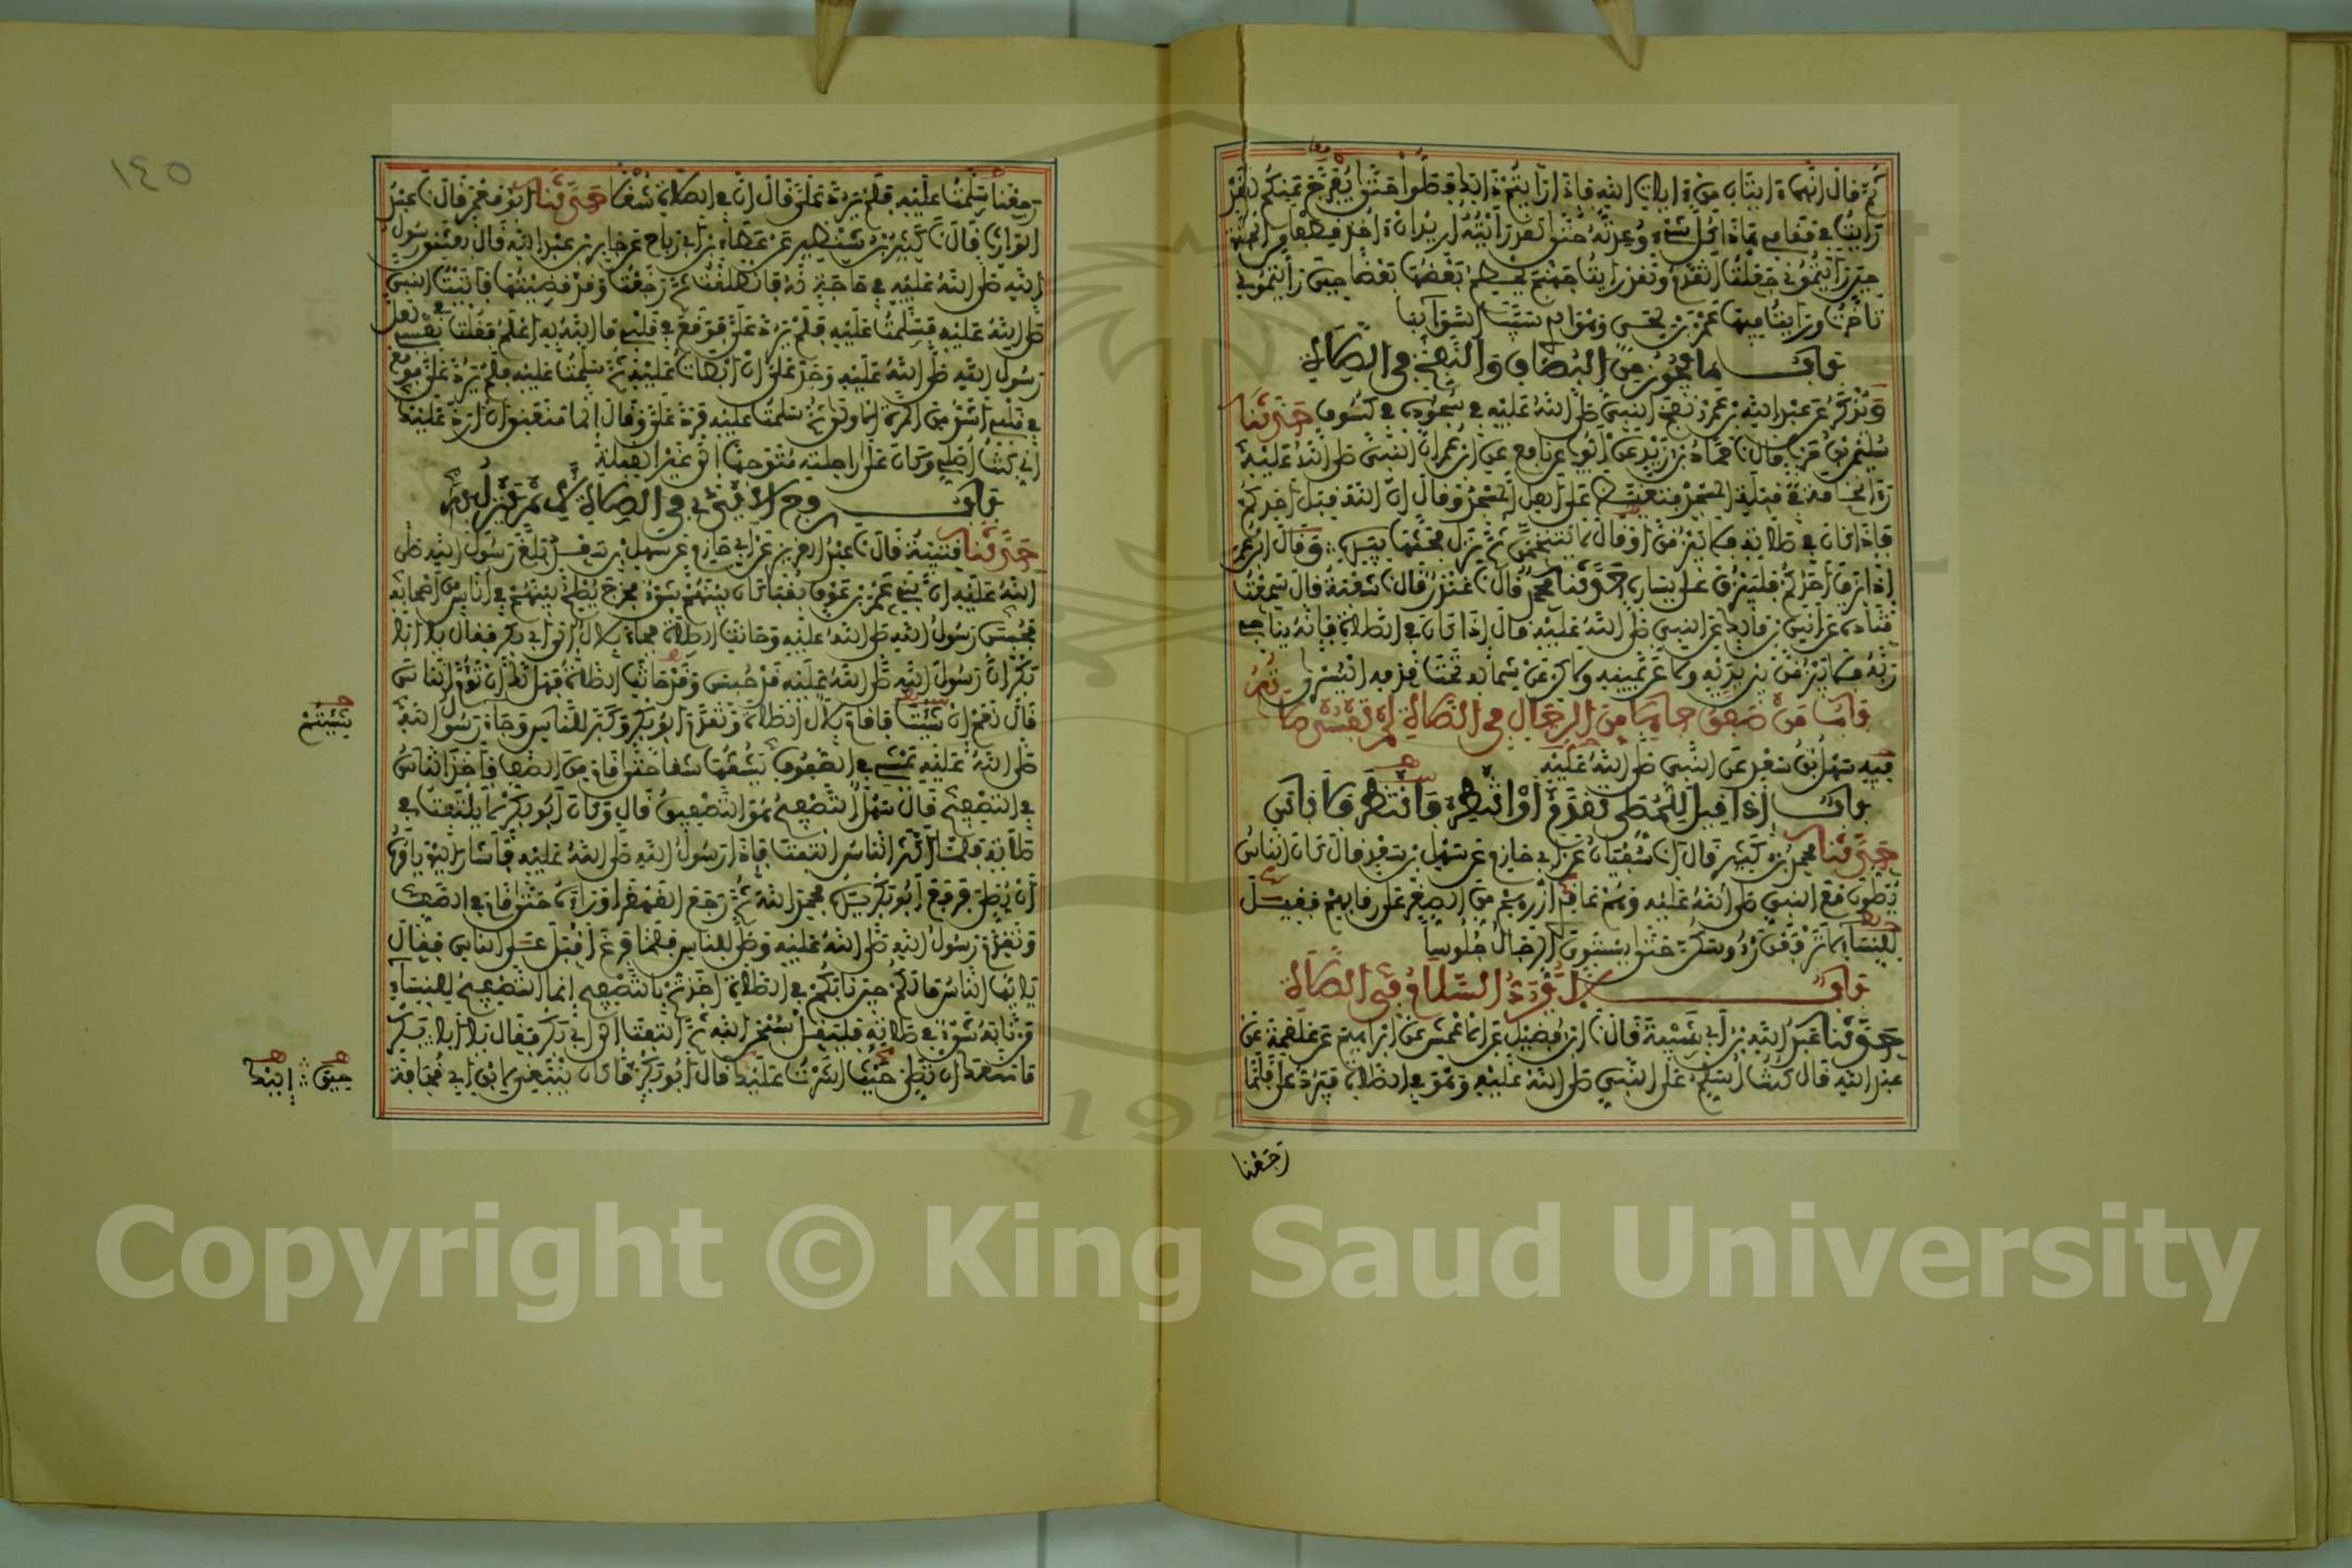 ثم قال انهما ءايتان من ءايات الله فاذا رأيتم ذلك فصلوا حتى يفرج عنكم لقد
رأيت في مقامي هذا كل شيء وعدته حتى لقد رأيته اريد ان ءاخذ قطفا من الجنة
حين رأيتموني جعلت اتقدم ولقد رأيت جهنم يحطم بعضها بعضا حين رأيتموني
تأخرت ورأيت فيها عمرو بن لحي وهو الذي سيب السوايب
باب ما يجوز من البصاق والنفخ في الصلاة
ويذكر عن عبد الله بن عمرو نفخ النبي صلى الله عليه في سجوده في كسوف حدثنا
سليمن بن حرب قال نا حماد بن زيد عن ايوب عن نافع عن ابن عمر ان النبي صلى الله عليه
رأى نخامة في قبلة المسجد فتغيظ على اهل المسجد وقال ان الله قبل احدكم
فاذا كان في صلاته فلا يبزقن او قال لا يتنخمن ثم نزل فحتها بيده وقال ابن عمر
اذا بزق احدكم فليبزق على يساره حدثنا محمد قال نا غندر قال نا شعبة قال سمعت
قتادة عن انس بن مالك عن النبي صلى الله عليه قال اذا كان في الصلاة فانه يناجي
ربه فلا يبزقن بين يديه ولا عن يمينه ولكن عن شماله تحت قدمه اليسرى
باب من صفق جاهلا من الرجال في الصلاة لم تفسد صلاته
فيه سهل بن سعد عن النبي صلى الله عليه
باب اذا قيل للمصلي تقدم او انتظر فانتظر فلا باس
حدثنا محمد بن كثير قال انا سفيان عن ابي حازم عن سهل بن سعد قال كان الناس
يصلون مع النبي صلى الله عليه وهم عاقدي ازرهم من الصغر على رقابهم فقيل
للنساء لا ترفعن رءوسكن حتى يستوي الرجال جلوسا
باب لا يرد السلام في الصلاة
حدثنا عبد الله بن ابي شيبة قال نا ابن فضيل عن الاعمش عن ابراهيم عن علقمة عن
عبد الله قال كنت اسلم على النبي صلى الله عليه وهو في الصلاة فيرد علي فلما
رجعنا
١٤٥
رجعنا سلمت عليه فلم يرد علي وقال ان في الصلاة شغلا حدثنا ابو معمر قال نا عبد
الوارث قال نا كثير بن شنظير عن عطاء بن ابي رباح عن جابر بن عبد الله قال بعثني رسول
الله صلى الله عليه في حاجة له فانطلقت ثم رجعت وقد قضيتها فاتيت النبي
صلى الله عليه فسلمت عليه فلم يرد علي فوقع في قلبي ما الله به اعلم فقلت في نفسي لعل
رسول الله صلى الله عليه وجد علي ان ابطأت عليه ثم سلمت عليه فلم يرد علي فوقع
في قلبي اشد من المرة الاولى ثم سلمت عليه فرد علي وقال انما منعني ان ارد عليك
اني كنت اصلي وكان على راحلته متوجها الى غير القبلة
باب رفع الايدي في الصلاة لامر ينزل به
حدثنا قتيبة قال نا عبد العزيز عن ابي حازم عن سهل بن سعد قال بلغ رسول الله صلى
الله عليه ان بني عمرو بن عوف بقبا كان بينهم شيء فخرج يصلح بينهم في اناس من اصحابه
فحبس رسول الله صلى الله عليه وحانت الصلاة فجاء بلال الى ابي بكر فقال يا ابا
بكر ان رسول الله صلى الله عليه قد حبس وقد حانت الصلاة فهل لك ان تؤم الناس
قال نعم ان شئت فاقام بلال الصلاة وتقدم ابو بكر وكبر للناس وجاء رسول الله
شئتم
صلى الله عليه يمشي في الصفوف يشقها شقا حتى قام من الصف فاخذ الناس
في التصفيح قال سهل التصفيح هو التصفيق قال وكان ابو بكر لا يلتفت في
صلاته فلما اكثر الناس التفت فاذا رسول الله صلى الله عليه فاشار اليه يامره
ان يصلي فرفع ابو بكر يده فحمد الله ثم رجع القهقرى وراءه حتى قام في الصف
وتقدم رسول الله صلى الله عليه وصلى للناس فلما فرغ اقبل على الناس فقال
يا ايها الناس ما لكم حين نابكم في الصلاة اخذتم بالتصفيح انما التصفيح للنساء
من نابه شيء في صلاته فليقل سبحن الله ثم التفت الى ابي بكر فقال يا ابا بكر
ما منعك ان تصلي حيث اشرت عليك قال ابو بكر ما كان ينبغي لابن ابي قحافة
حين اليك
Copyright © King Saud University
1957